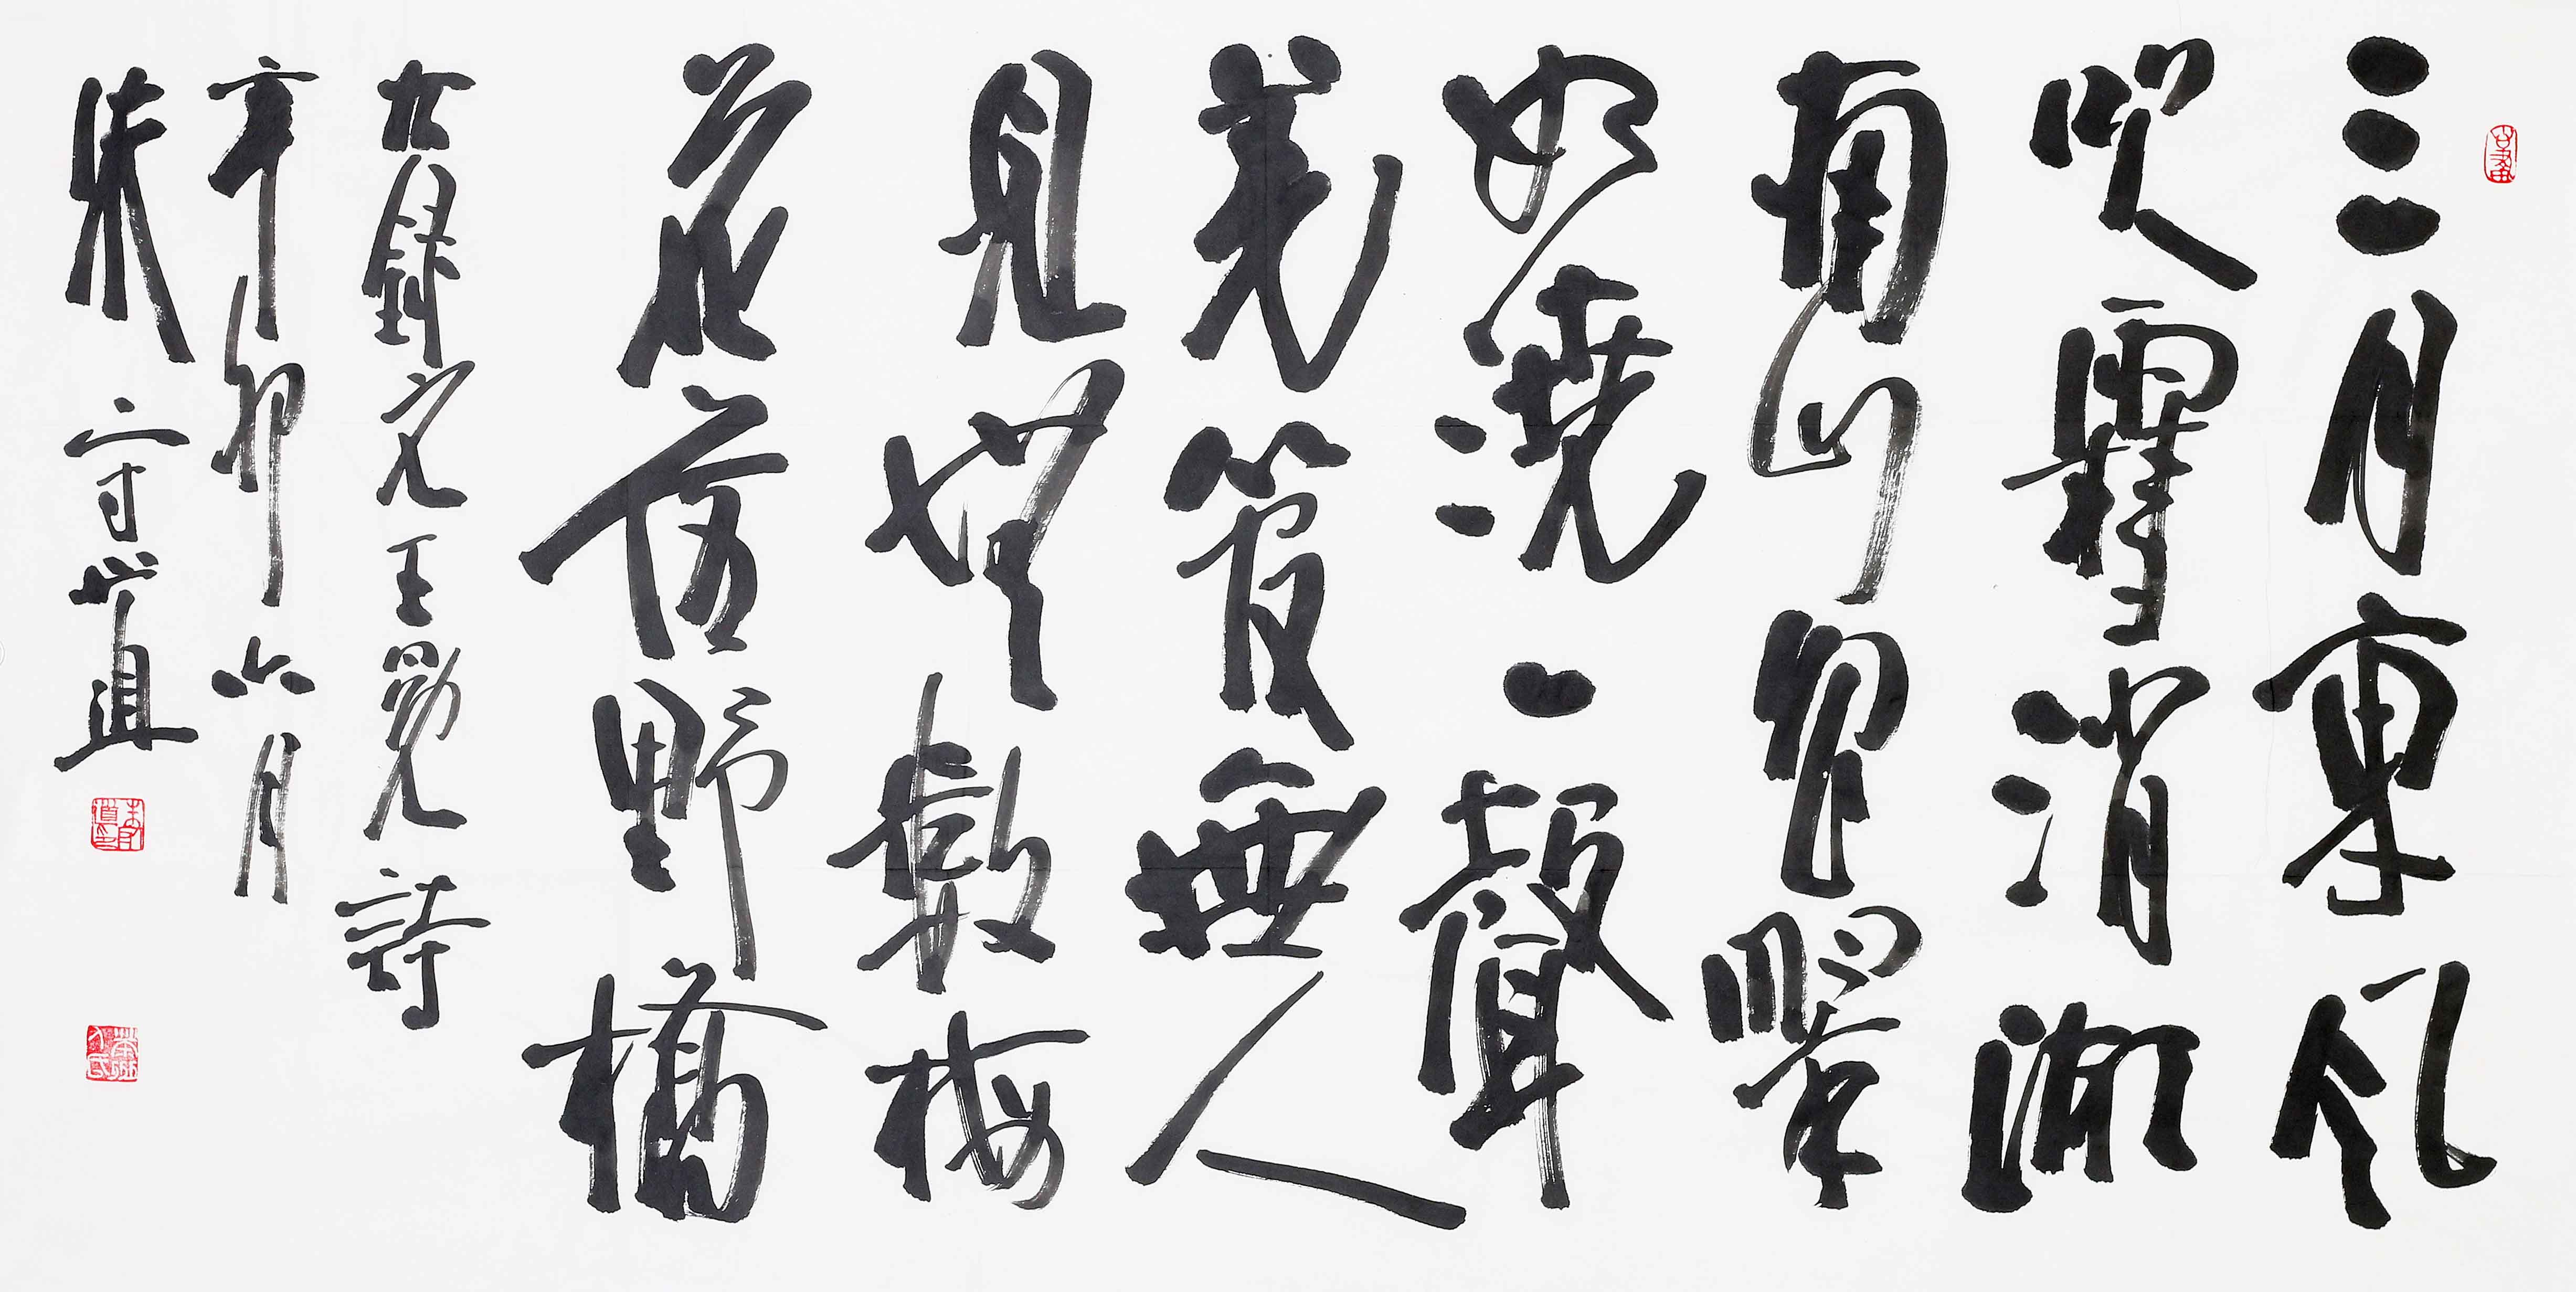 三月東風
吹雪消湖
南山色翠
如澆一聲
羌管無人
見無數梅
花落野橋
右錄元王冕詩
辛卯六月
朱守道